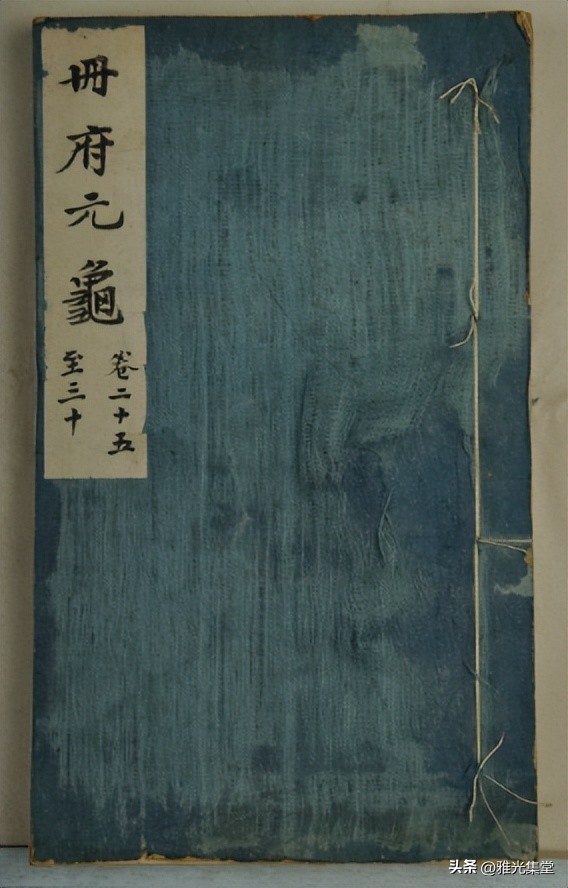 冊府元龜
卷二十五
至三十
头条 @雅光集堂